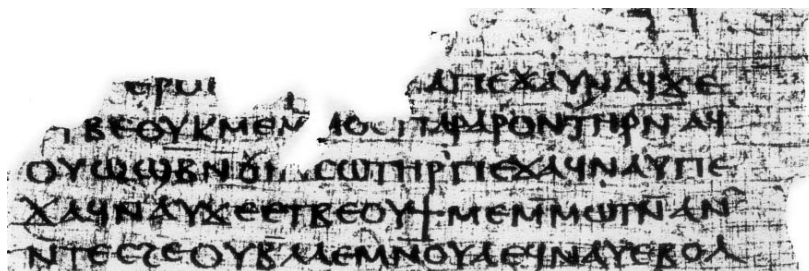 ⲡⲉϫⲁⲩⲛⲁϥϫⲉ
ⲃⲉⲟⲩⲕⲙⲉ ⲙⲟⲥ ⲡⲁⲣⲁⲣⲟⲛⲧⲏⲣⲛ ⲁϥ
ⲟⲩⲱϣⲃⲛϭⲓ ⲥⲱⲧⲏⲣⲡⲉϫⲁϥⲛⲁⲩⲡⲉ
ϫⲁϥⲛⲁⲩϫⲉⲉⲧⲃⲉⲟⲩϯⲙⲉⲙⲙⲱⲧⲛⲁⲛ
ⲛⲧⲉⲥϩⲉⲟⲩⲃⲗⲗⲉⲙⲛⲟⲩⲁⲉϥⲛⲁⲩⲉⲃⲟⲗ